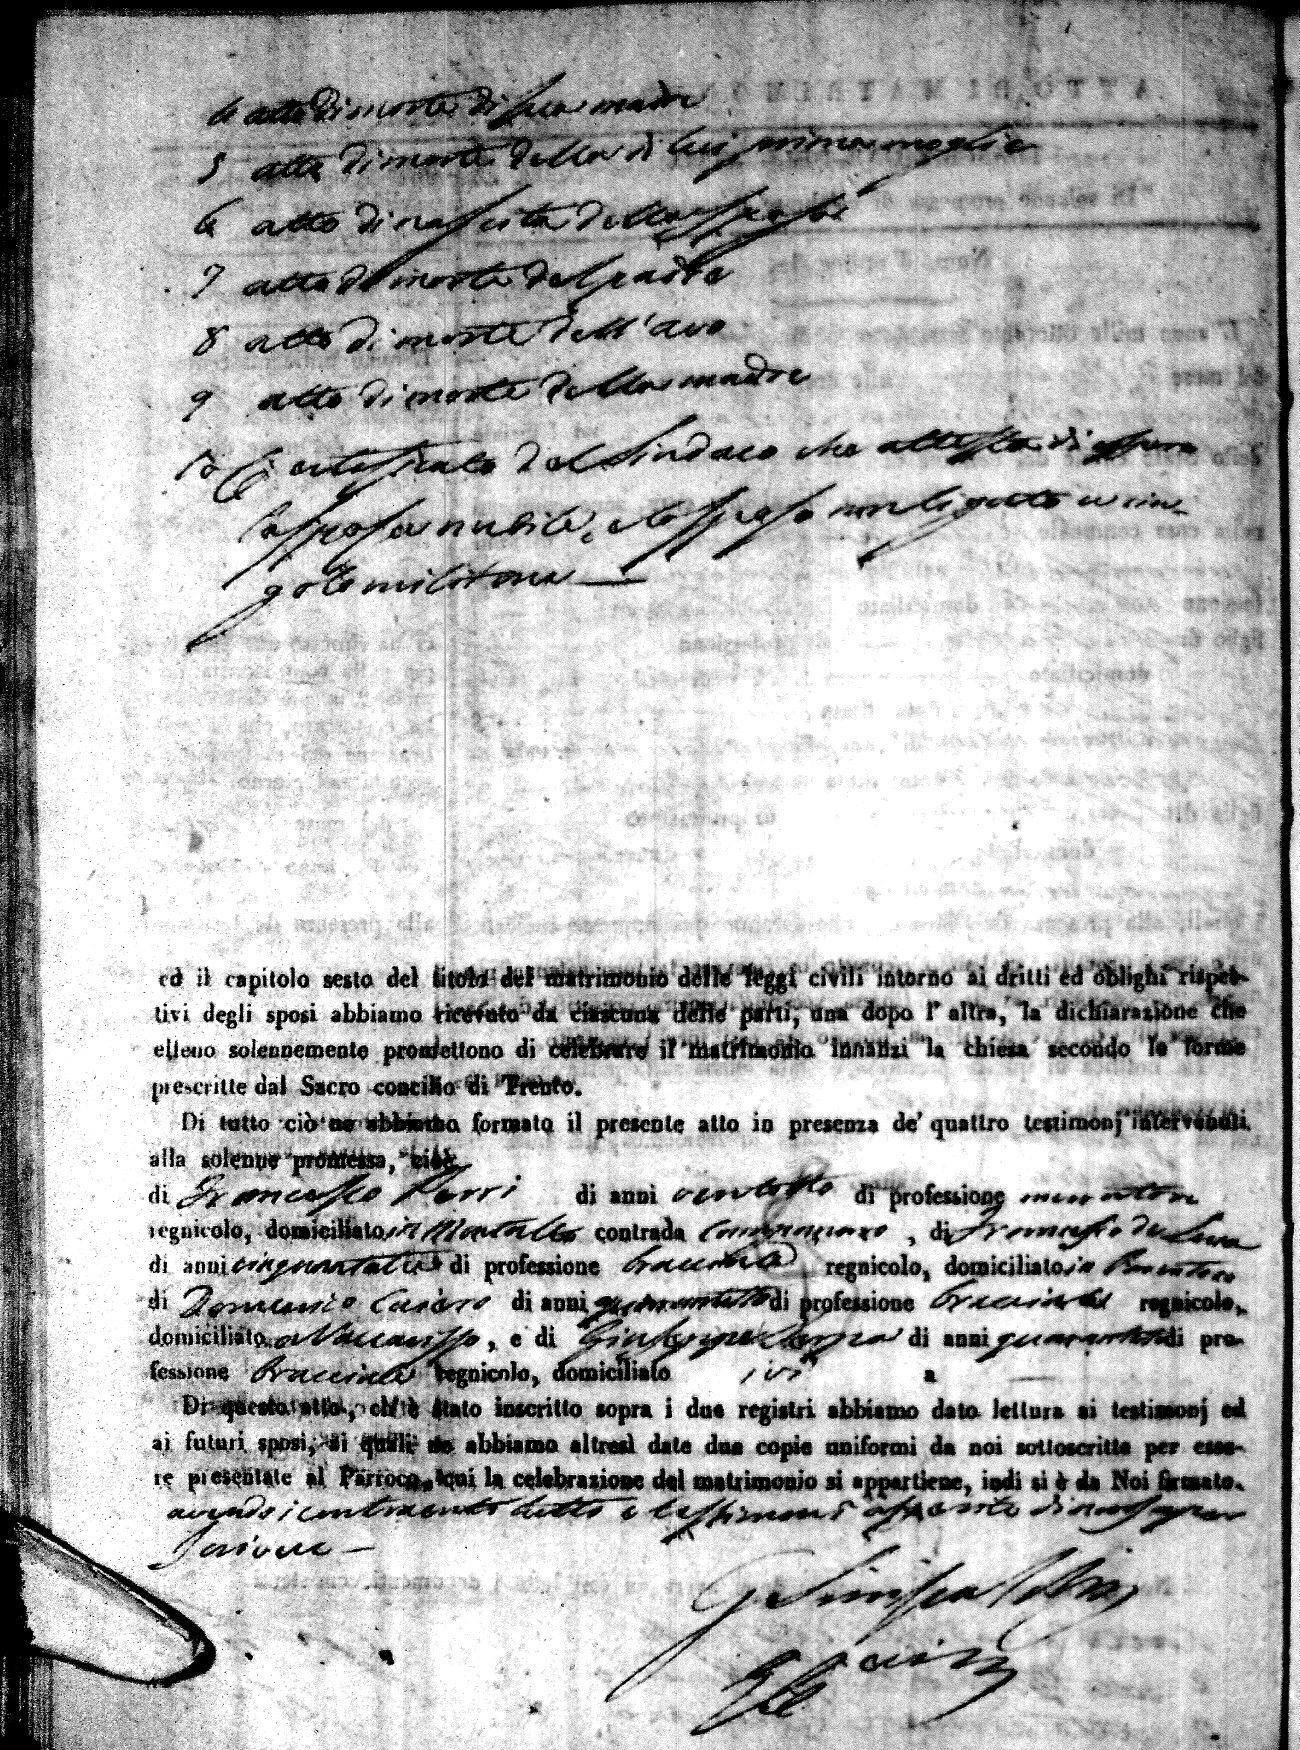 4 atto di morte di sua madre
5 atto di morte della di lui prima moglie
6 atto di nascita della sposa
7 atto di morte del padre
8 atto di morte dell'avo
9 atto di morte della madre
10 Certificato del Sindaco che attesta di essere
la sposa nubile, e lo sposo non ligato a vin-
golo militare —
ed il capitolo sesto del titolo del matrimonio delle leggi civili intorno ai dritti ed oblighi rispet-
tivi degli sposi abbiamo ricevuto da ciascuna delle parti, una dopo l' altra, la dichiarazione che
elleno solennemente promettono di celebrare il matrimonio innanzi la chiesa secondo le forme
prescritte dal Sacro concilio di Trento.
Di tutto ciò ne abbiamo formato il presente atto in presenza de' quattro testimonj intervenuti
alla solenne promessa, cioè
di Francesco di anni ventotto di professione
regnicolo, domiciliato in Montalto contrada , di Francesco de Luca
di anni di professione bracciale regnicolo, domiciliato in
di Domenico di anni di professione bracciale regnicolo,
domiciliato a Vaccarizzo, e di Giuseppe di anni di pro-
fessione bracciale regnicolo, domiciliato ivi
Di questo atto, ch' è stato inscritto sopra i due registri abbiamo dato lettura ai testimonj ed
ai futuri sposi, ai quali ne abbiamo altresì date due copie uniformi da noi sottoscritte per esse-
re presentate al Parroco, cui la celebrazione del matrimonio si appartiene, indi si è da Noi firmato.
avendo i contraenti detto e testimoni